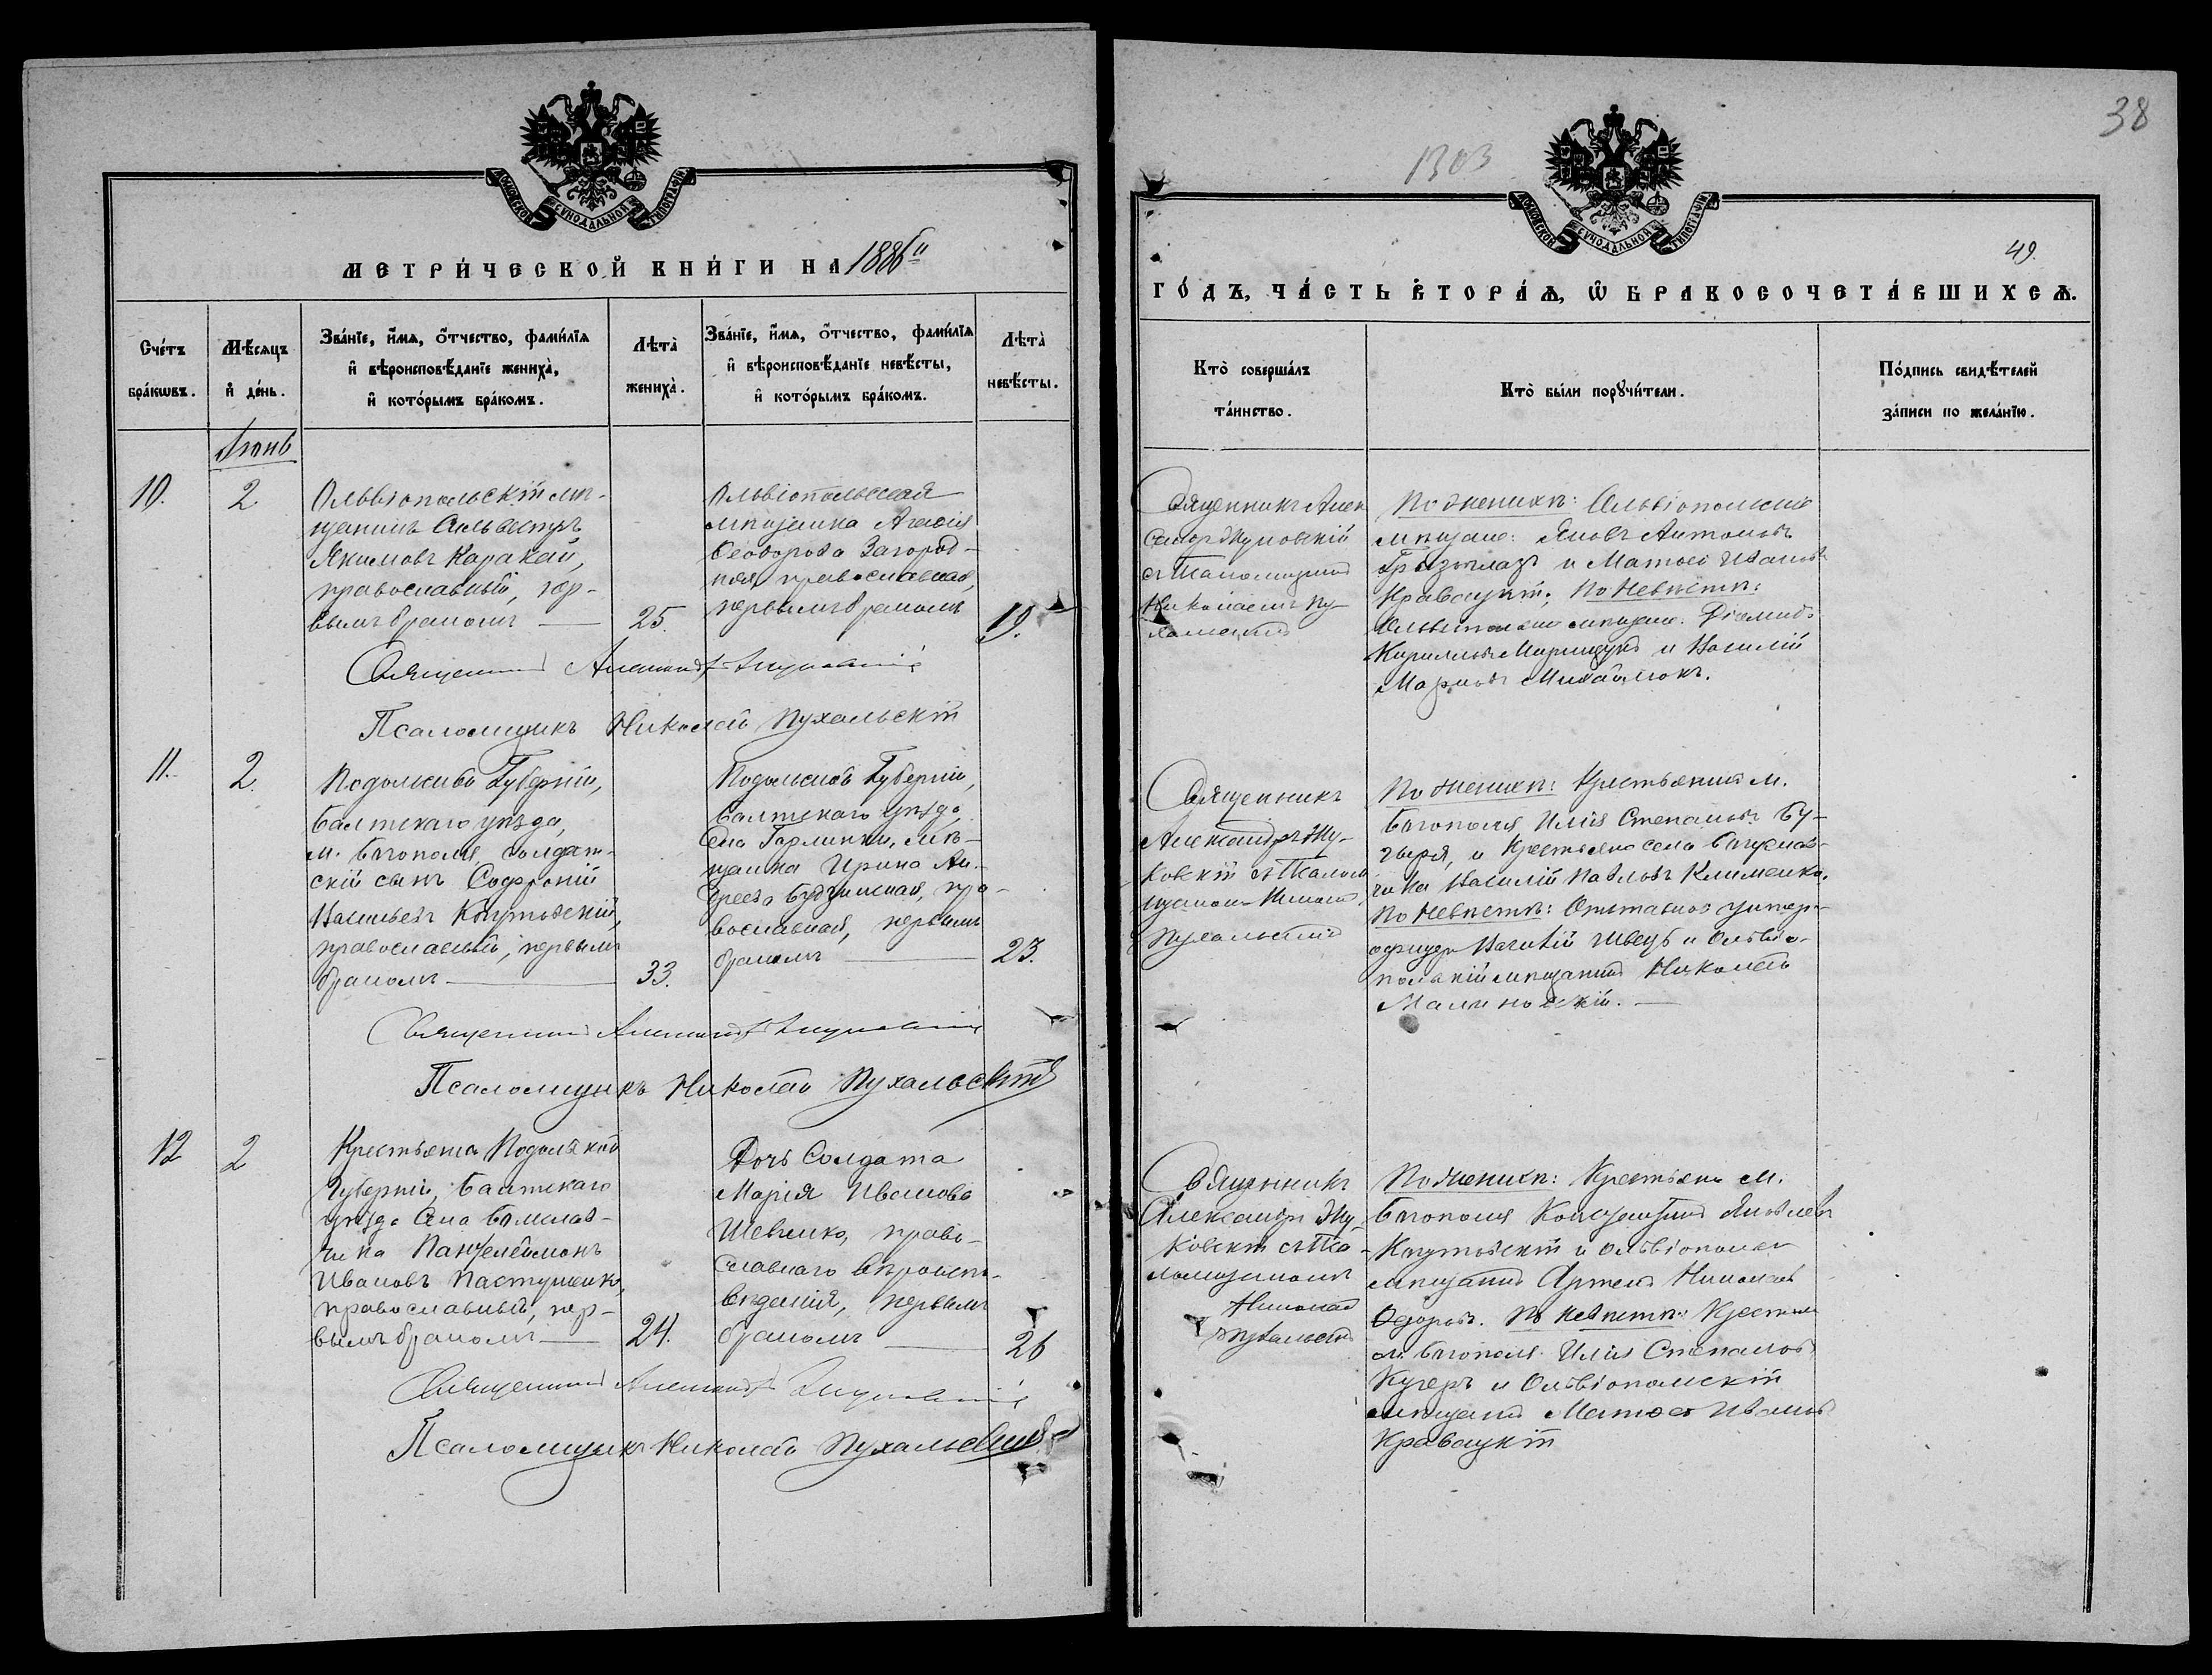 38
1303
МОСКОВСКОЙ СѴНОДАЛЬНОЙ ТИПОГРАФІИ
МОСКОВСКОЙ СѴНОДАЛЬНОЙ ТИПОГРАФІИ
49.
МЕТРИ́ЧЕСКОЙ КНИ́ГИ НА 1886й
ГО́ДЪ, ЧА́СТЬ ВТОРА́Ѧ, Ѡ БРАКОСОЧЕТА́ВШИХСѦ.
Сче́тъ
бра́кѡвъ.
Мѣ́сяцъ
и де́нь.
Зва́нїе, и́мѧ, ѻ́тчество, фами́лїѧ
и вѣроисповѣ́данїе жениха̀,
и кото́рымъ бра́комъ.
Лѣта̀
жениха̀.
Зва́нїе, и́мѧ, ѻ́тчество, фами́лїѧ
и вѣроисповѣ́данїе невѣ́сты,
и кото́рымъ бра́комъ.
Лѣта̀
невѣ́сты.
Кто̀ соверша́лъ
та́инство.
Кто̀ бы́ли порꙋчи́тели.
По́дпись свидѣ́телей
за́писи по жела́нїю.
Іюнь
10.
2
Ольвіопольскій мѣ-
щанинъ Сильвестръ
Якимовъ Каракай,
православный, пер-
вымъ бракомъ
25.
Ольвіопольская
мѣщанка Агафія
Ѳеодорова Загород-
няя, православная,
первымъ бракомъ
19.
Священникъ Алек
сандръ Жуковскій
съ Псаломщикомъ
Николаемъ Пу-
хальскимъ
По женихѣ: Ольвіопольскіе
мѣщане: Яковъ Антоновъ
и Матѳей Ивановъ
Кравацкій; По невѣстѣ:
Ольвіопольскіе мѣщане: Діомидъ
Кирилловъ и Василій
Марковъ Михайлюкъ.
Священникъ Александръ Жуковскій
Псаломщикъ Николай Пухальскій
11.
2.
Подольской Губерніи,
Балтскаго уѣзда,
м. Богополя, солдат-
скій сынъ Софроній
Васильевъ
православный, первымъ
бракомъ
33.
Подольской Губерніи,
Балтскаго уѣзда,
села мѣ-
щанка Ирина Ан-
дреева пра-
вославная, первымъ
бракомъ
23.
Священникъ
Александръ Жу-
ковскій съ Псалом
щикомъ Николаемъ
Пухальскимъ
По женихѣ: Крестьянинъ м.
Богополя Илія Степановъ Ку-
черъ, и Крестьянинъ села
Василій Павловъ Клименко.
По невѣстѣ: Отставной унтеръ-
офицеръ Василій Швецъ и Ольвіо-
польскій мѣщанинъ Николай
Малиновскій.
Священникъ Александръ Жуковскій
Псаломщикъ Николай Пухальскій
12
2
Крестьянинъ Подольской
Губерніи, Балтскаго
уѣзда села
Пантелеймонъ
Ивановъ Пастушенко,
православный, пер-
вымъ бракомъ
24.
Дочь Солдата
Марія Иванова
Шевченко, право-
славнаго вѣроиспо-
вѣданія, первымъ
бракомъ
26
Священникъ
Александръ Жу-
ковскій съ Пса-
ломщикомъ
Николаемъ
Пухальскимъ
По женихѣ: Крестьянинъ м.
Богополя Константинъ Яковлевъ
и Ольвіопольскій
мѣщанинъ Артемій Николаевъ
По невѣстѣ: Крестьянинъ
м. Богополя Илія Степановъ
Кучеръ и Ольвіопольскій
мѣщанинъ Матѳей Ивановъ
Кравацкій
Священникъ Александръ Жуковскій
Псаломщикъ Николай Пухальскій